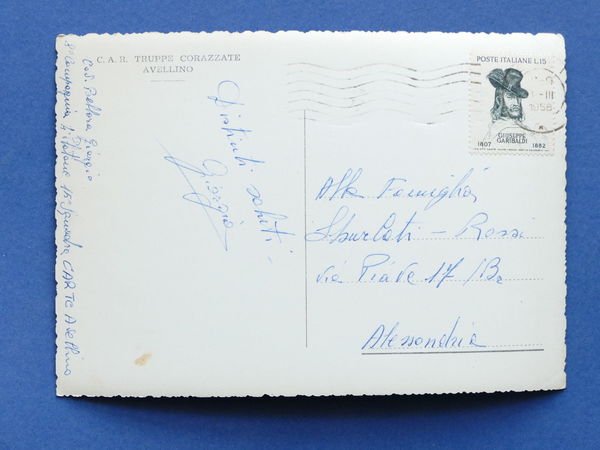 C. A. R. TRUPPE CORAZZATE
AVELLINO
POSTE ITALIANE L.15
GIUSEPPE
GARIBALDI
1807 1882
-III
1958
Distinti saluti
Giorgio
Alla Famiglia
Sburlati - Rossi
via Piave 17/Bis
Alessandria
Giorgio
8ª Compagnia 4° Plotone 15ª Squadra CAR TC Avellino